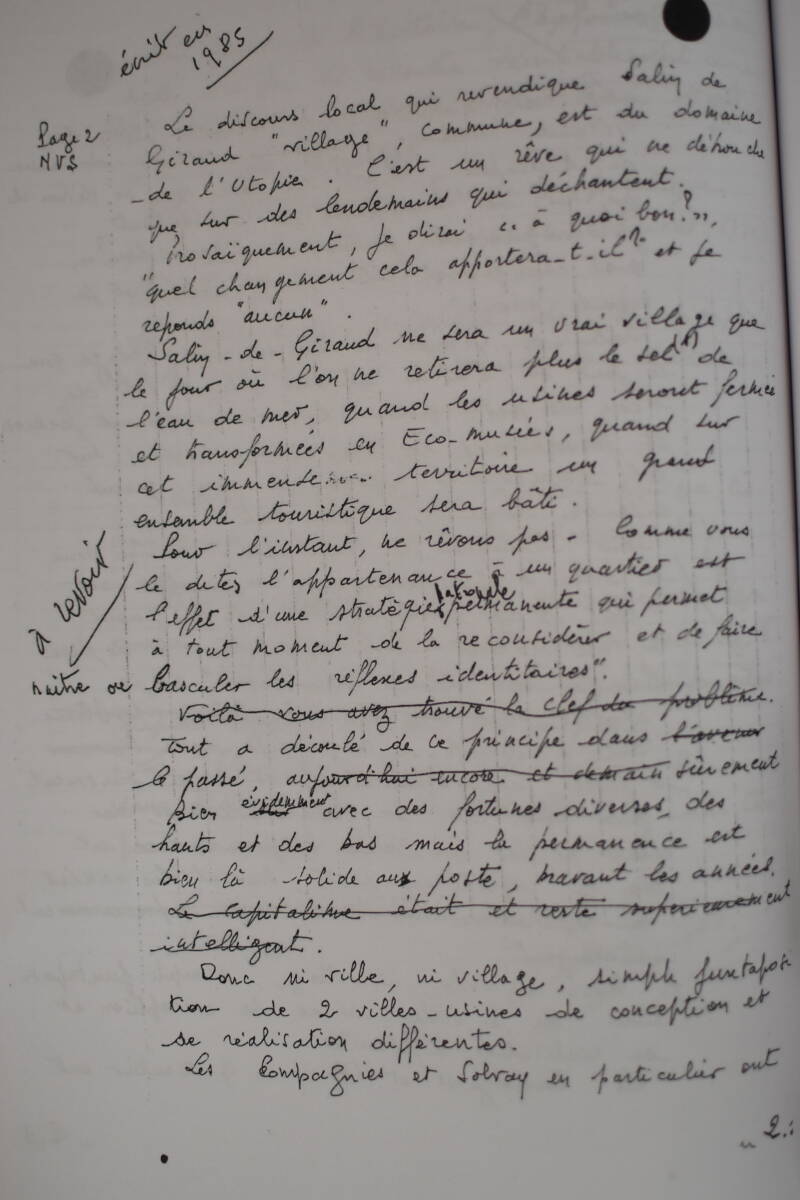 écrit en
1985
Page 2
NVS
Le discours local qui revendique Salin de
Giraud "village", commune, est du domaine
de l'Utopie. C'est un rêve qui ne débouche
que sur des lendemains qui déchantent.
Prosaïquement, je dirai "à quoi bon?",
"quel changement cela apportera-t-il?" et je
reponds "aucun".
Salin-de-Giraud ne sera un vrai village que
le jour où l'on ne retirera plus le sel de
l'eau de mer, quand les usines seront fermées
et transformées en Eco-musées, quand sur
cet immense territoire un grand
ensemble touristique sera bâti.
Pour l'instant, ne rêvons pas - Comme vous
le dites l'appartenance à un quartier est
l'effet d'une stratégie permanente qui permet
à tout moment de la reconsidérer et de faire
à revoir
naître ou basculer les réflexes identitaires".
Voilà vous avez trouvé la clef du problème.
Tout a découlé de ce principe dans l'avenir
le passé, aujourd'hui encore et demain sûrement
bien évidemment avec des fortunes diverses, des
hauts et des bas mais la permanence est
bien là solide au poste, bravant les années.
Le capitalisme était et reste supérieurement
intelligent.
Donc ni ville, ni village, simple juxtaposi
tion de 2 villes-usines de conception et
de réalisation différentes.
Les Compagnies et Solvay en particulier ont
2.